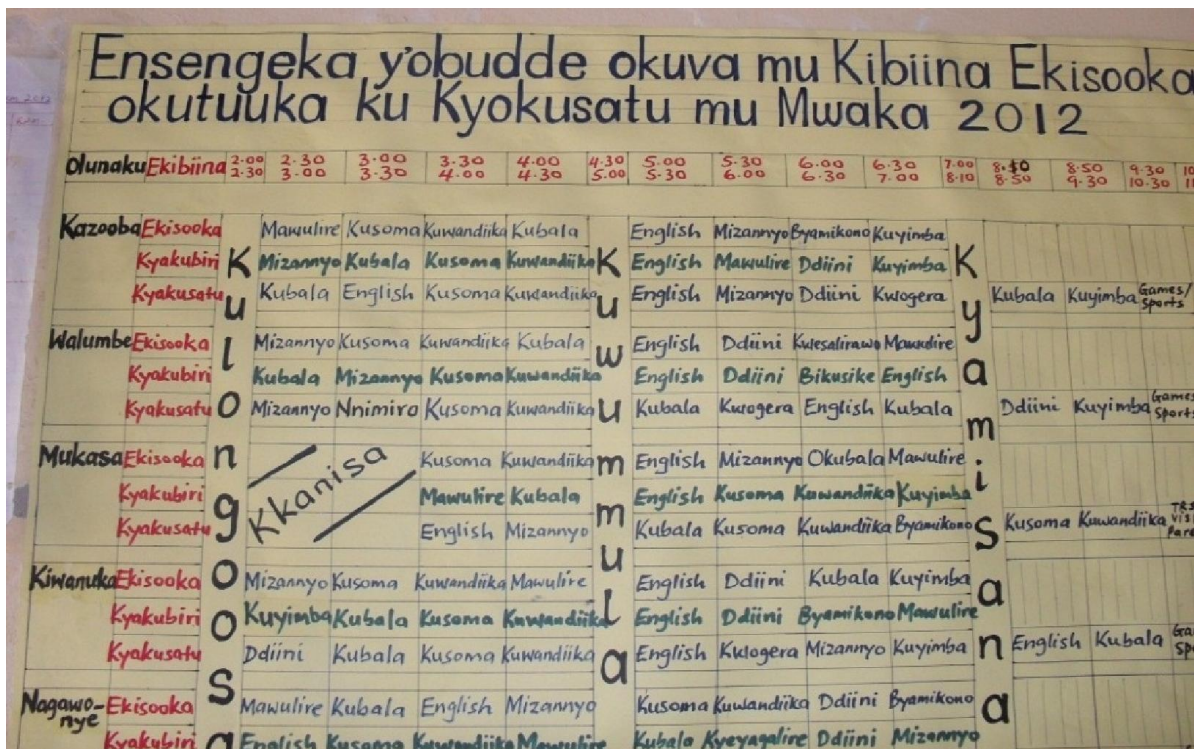 Ensengeka y'obudde okuva mu Kibiina Ekisooka
okutuuka ku Kyokusatu mu Mwaka 2012
Olunaku Ekibiina 2.00 2.30 2.30 3.00 3.00 3.30 3.30 4.00 4.00 4.30 4.30 5.00 5.00 5.30 5.30 6.00 6.00 6.30 6.30 7.00 7.00 8.10 8.10 8.50 8.50 9.30 9.30 10.30
Kazooba Ekisooka Mawulire Kusoma Kuwandiika Kubala English Mizannyo Byamikono Kuyimba
Kyakubiri Mizannyo Kubala Kusoma Kuwandiika English Mawulire Ddiini Kuyimba
Kyakusatu Kubala English Kusoma Kuwandiika English Mizannyo Ddiini Kwogera Kubala Kuyimba Games/ Sports
Walumbe Ekisooka Mizannyo Kusoma Kuwandiika Kubala English Ddiini Kwesalirawo Mawulire
Kyakubiri Kubala Mizannyo Kusoma Kuwandiika English Ddiini Bikusike English
Kyakusatu Mizannyo Nnimiro Kusoma Kuwandiika Kubala Kwogera English Kubala Ddiini Kuyimba Games Sports
Mukasa Ekisooka Kkanisa Kusoma Kuwandiika English Mizannyo Okubala Mawulire
Kyakubiri Mawulire Kubala English Kusoma Kuwandiika Kuyimba
Kyakusatu English Mizannyo Kubala Kusoma Kuwandiika Byamikono Kusoma Kuwandiika
Kiwanuka Ekisooka Mizannyo Kusoma Kuwandiika Mawulire English Ddiini Kubala Kuyimba
Kyakubiri Kuyimba Kubala Kusoma Kuwandiika English Ddiini Byamikono Mawulire
Kyakusatu Ddiini Kubala Kusoma Kuwandiika English Kwogera Mizannyo Kuyimba English Kubala
Nagawo-nye Ekisooka Mawulire Kubala English Mizannyo Kusoma Kuwandiika Ddiini Byamikono
Kyakubiri English Kusoma Kuwandiika Mawulire Kubala Kyeyagalire Ddiini Mizannyo
Kulongoosa
Kuwummula
Kyamisana